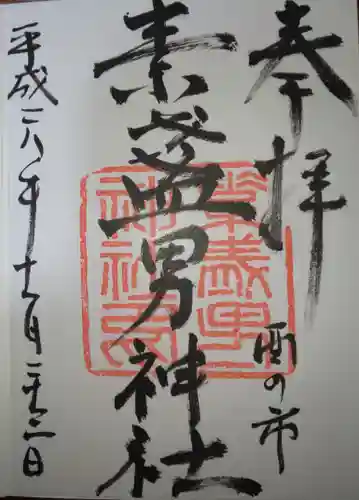 奉拝
酉の市
素盞男神社
平成二八年十一月二十三日